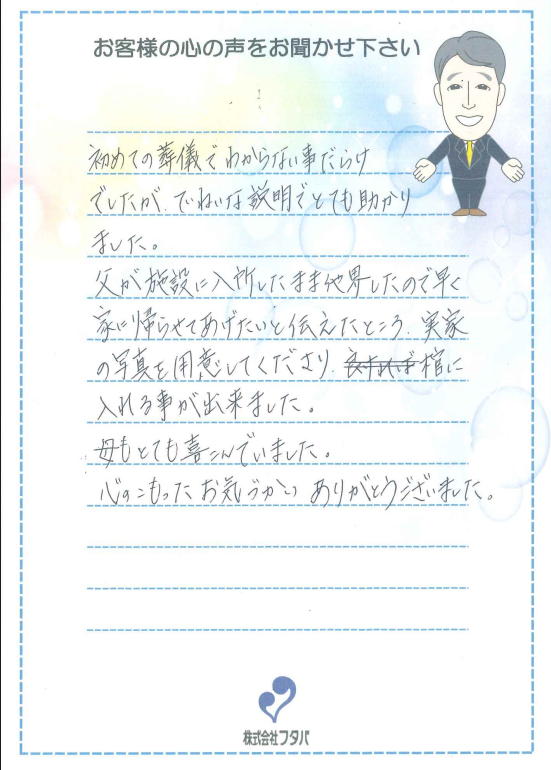 お客様の心の声をお聞かせ下さい
初めての葬儀でわからない事だらけ
でしたが、ていねいな説明でとても助かり
ました。
父が施設に入所したまま他界したので早く
家に帰らせてあげたいと伝えたところ、実家
の写真を用意してくださり、棺に
入れる事が出来ました。
母もとても喜こんでいました。
心のこもったお気づかい ありがとうございました。
株式会社フタバ